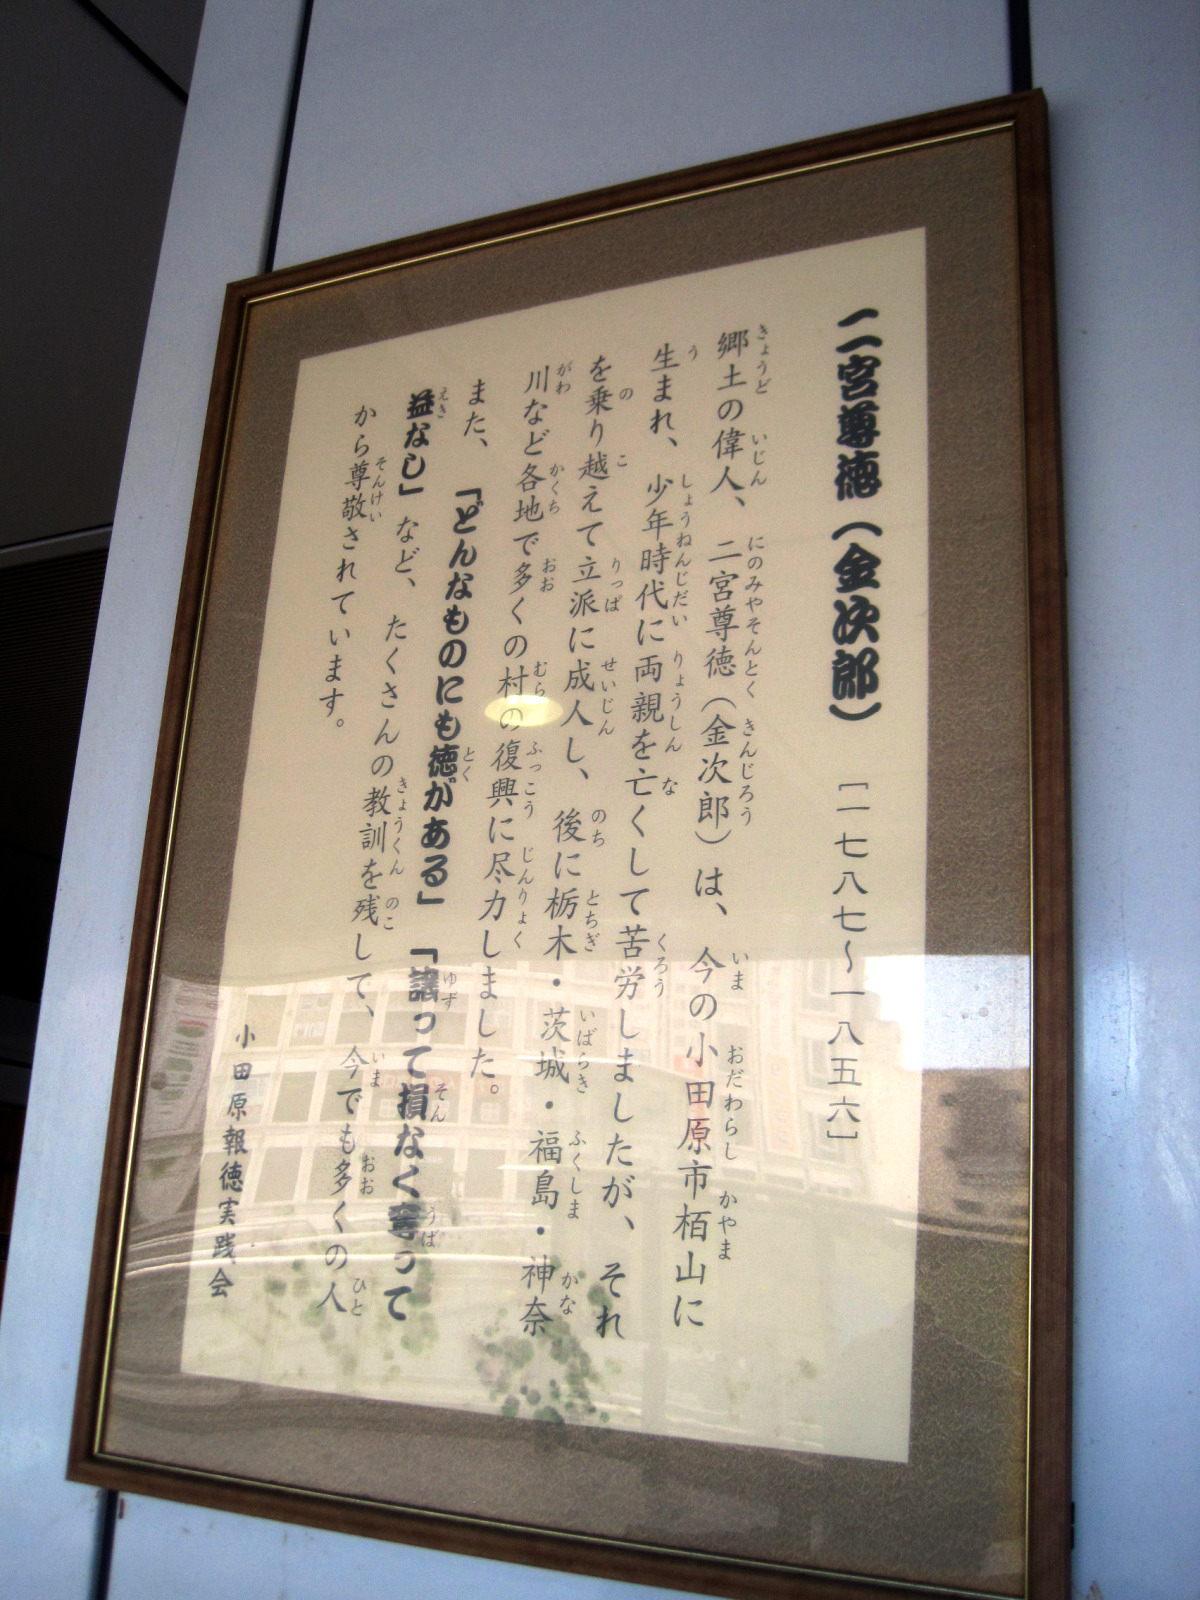 二宮尊徳（金次郎）　［一七八七～一八五六］
郷土の偉人、二宮尊徳（金次郎）は、今の小田原市栢山に
生まれ、少年時代に両親を亡くして苦労しましたが、それ
を乗り越えて立派に成人し、後に栃木・茨城・福島・神奈
川など各地で多くの村の復興に尽力しました。
また、「どんなものにも徳がある」「譲って損なく奪って
益なし」など、たくさんの教訓を残して、今でも多くの人
から尊敬されています。
小田原報徳実践会